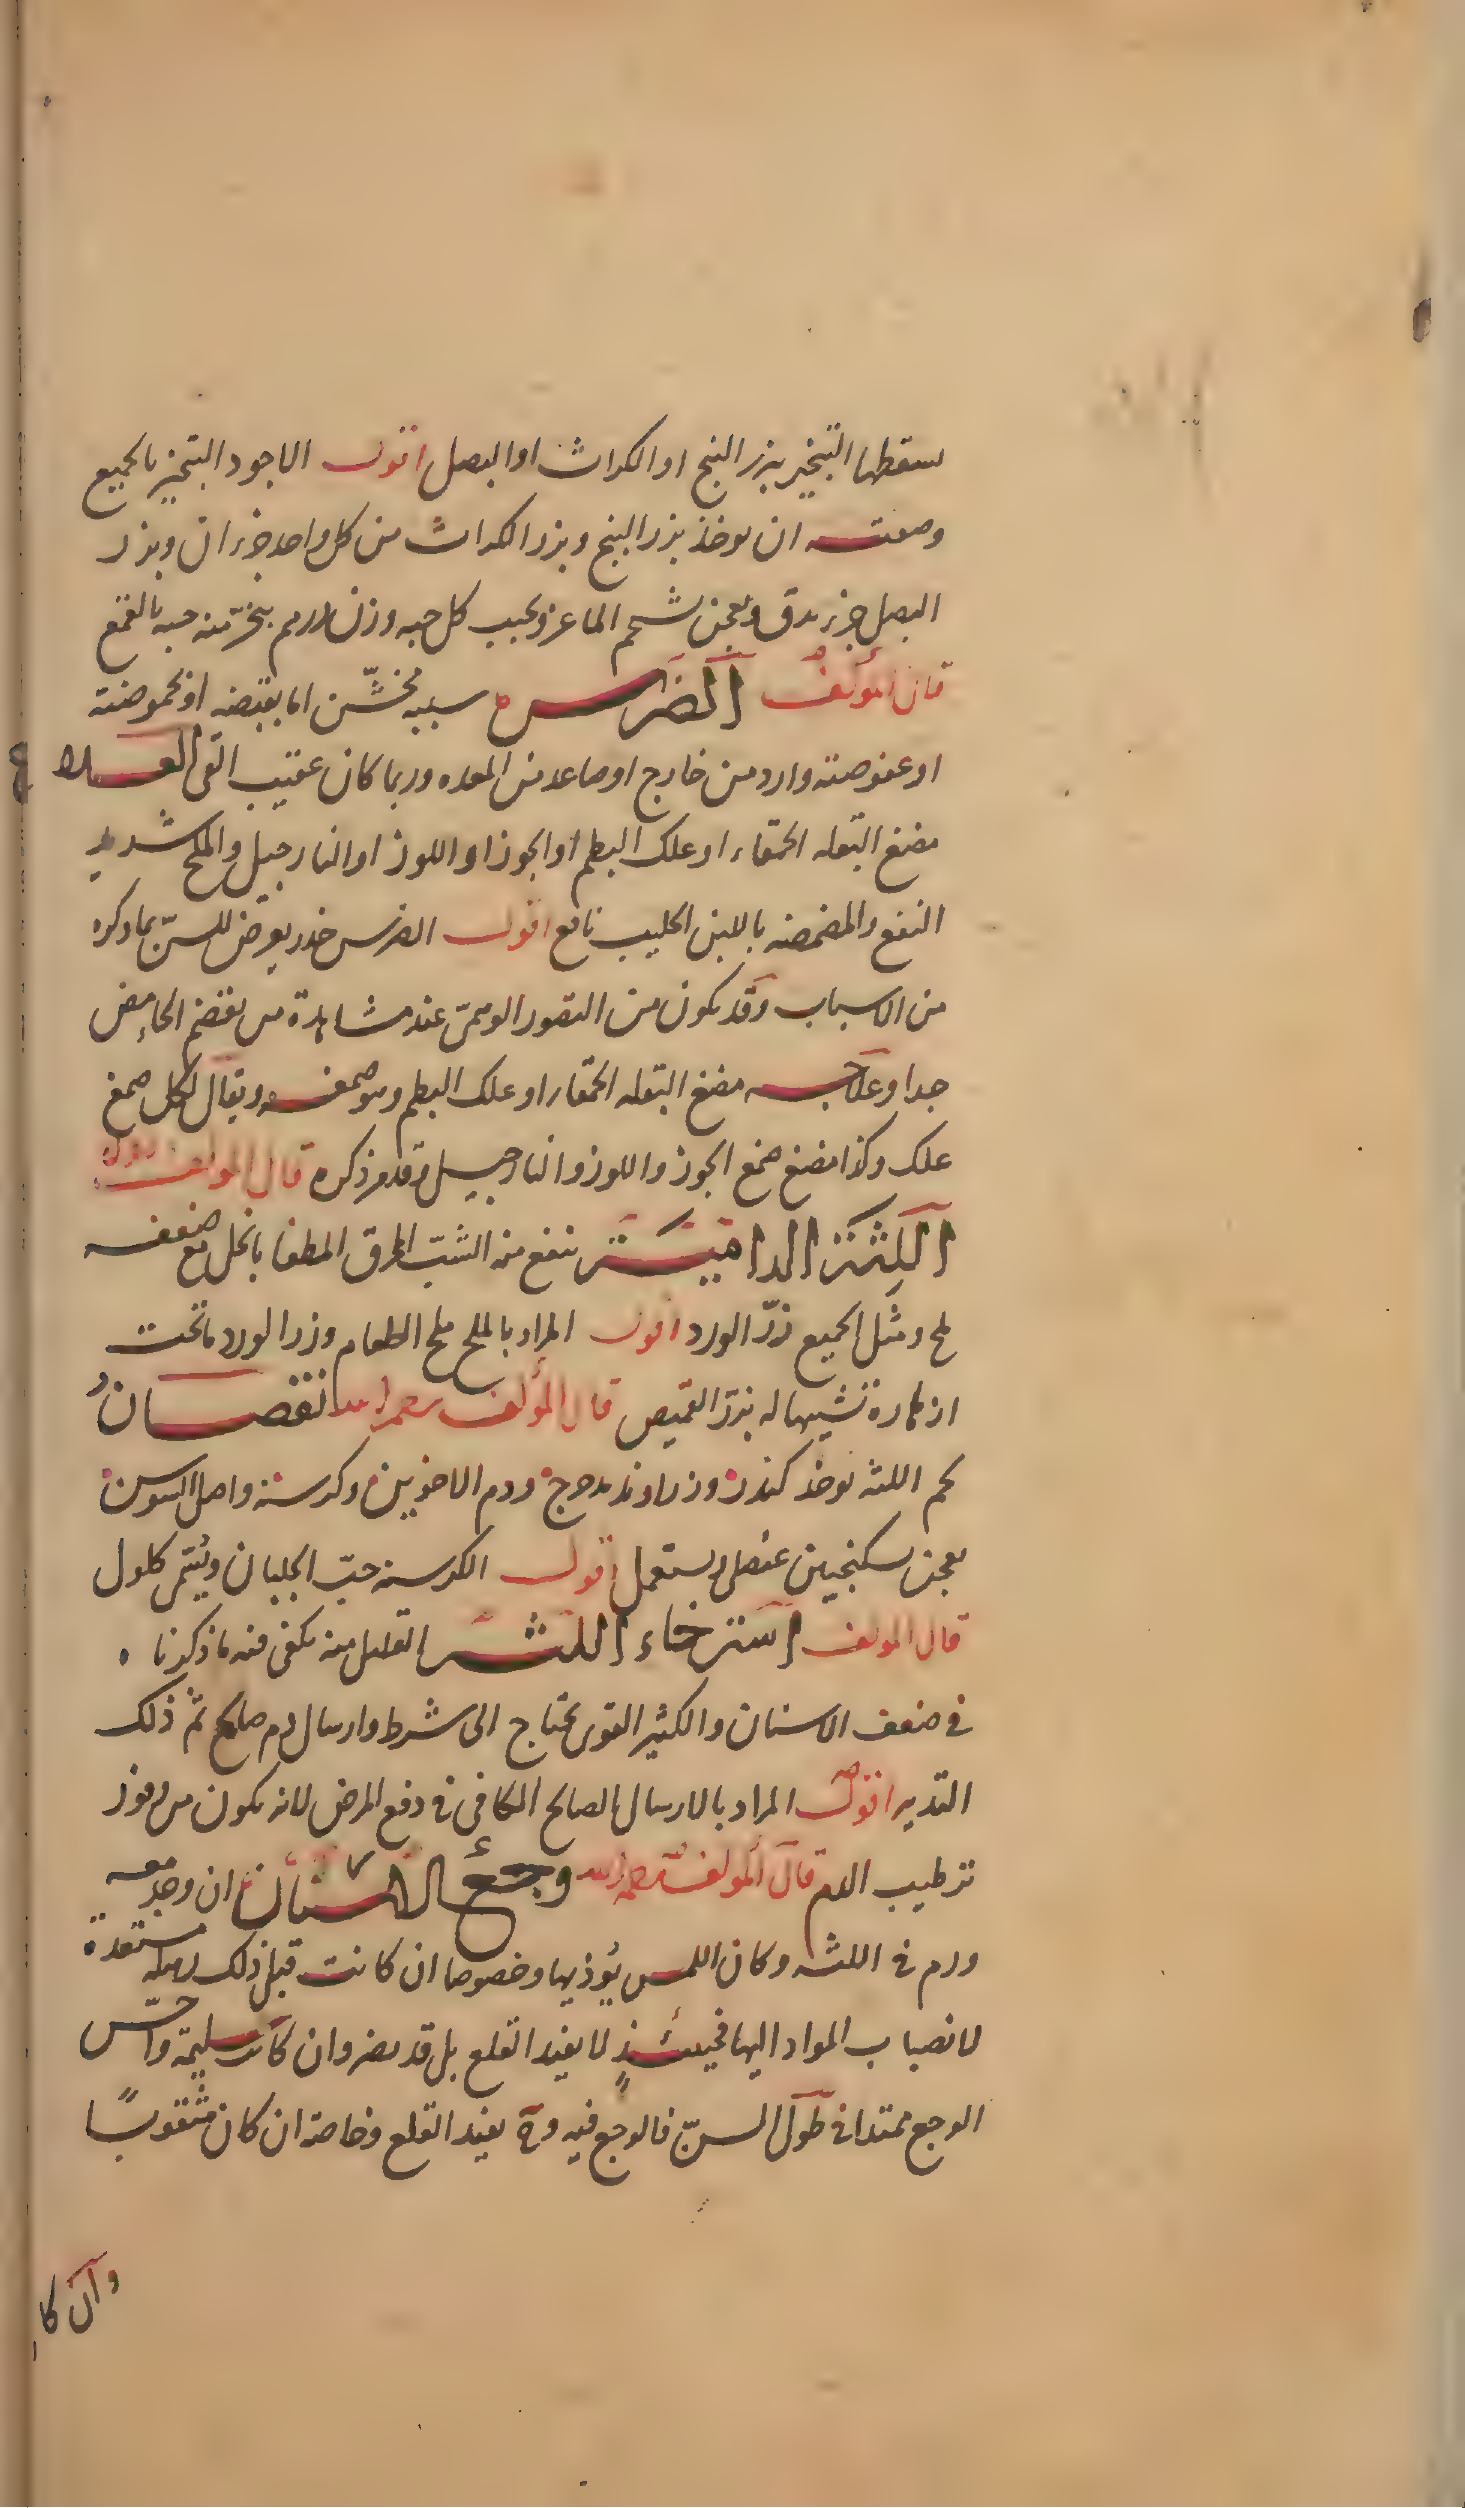 يسقطها التبخير ببزر البنج او الكراث او البصل اقول الاجود التبخير بالجميع
وصفته ان يوخذ بزر البنج وبزر الكراث من كل واحد جزءان وبزر
البصل جزء يدق ويعجن بشحم الماعز ويحبب كل حبه وزن درهم يبخر منه حبه بالقمع
قال المؤلف الضرس سببه مخشّن اما بقبضه او بحموضته
او عفوصته وارد من خارج او صاعد من المعده وربما كان عقيب القى العلاج
مضغ البقله الحمقاء او علك البطم او الجوز او اللوز او النارجيل والملح شديد
النفع والمضمضه باللبن الحليب نافع اقول الضرس خدر يعرض للسنّ بما ذكره
من الاسباب وقد يكون من التصور الوهمىّ عند مشاهدة من يقضم الحامض
جدا وعلاجه مضغ البقله الحمقاء او علك البطم وهو صمغه ويقال لكل صمغ
علك وكذا مضغ صمغ الجوز واللوز والنارجيل وقد مر ذكره قال المولف
اللثة الدامية ينفع منه الشبّ المحرق المطفا بالخل مع ضعفه
ملح ومثل الجميع زرّ الورد اقول المراد بالملح ملح الطعام وزر الورد ما تحت
ازهاره تشبيها له بزرّ القميص قال المؤلف رحمه الله نقصان
لحم اللثه يوخذ كندر وزراوند مدحرج ودم الاخوين وكرسنه واصل السوسن
يعجن بسكنجبين عنصلى ويستعمل اقول الكرسنه حبّ الجلبان
قال المولف استرخاء اللثه القليل منه يكفى فيه ما ذكرنا
فى ضعف الاسنان والكثير القوى يحتاج الى شرط وارسال دم صالح ثم ذلك
التدبير اقول المراد بالارسال الصالح الكافى فى دفع المرض لانه يكون من
ترطيب الدم قال المولف رحمه الله وجع الاسنان ان وجد معه
ورم فى اللثه وكان اللمس يؤذيها وخصوصا ان كانت قبل ذلك رهله مستعدة
لانصباب المواد اليها فحينئذٍ لا يفيد القلع بل قد يضر وان كانت سليمة واحسّ
الوجع ممتدا فى طول السنّ فالوجع فيه وح يفيد القلع وخاصة ان كان مثقوبًا
وان كا